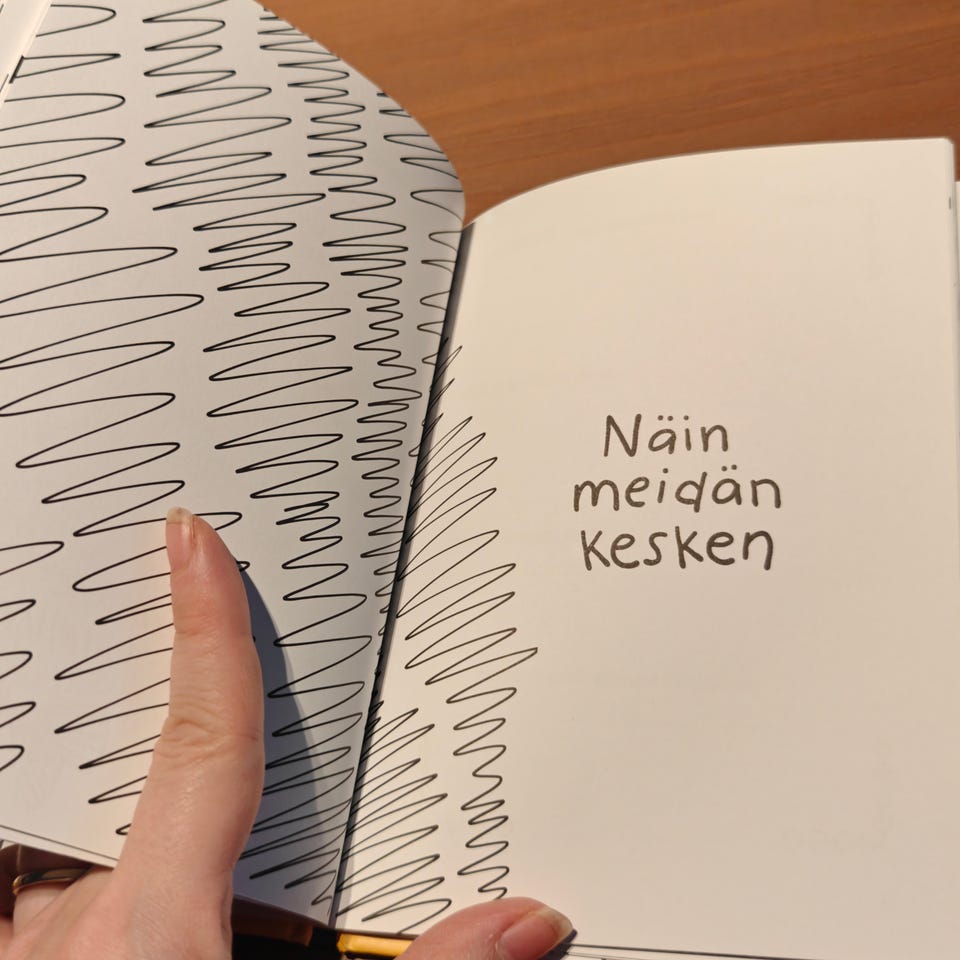 Näin
meidän
kesken